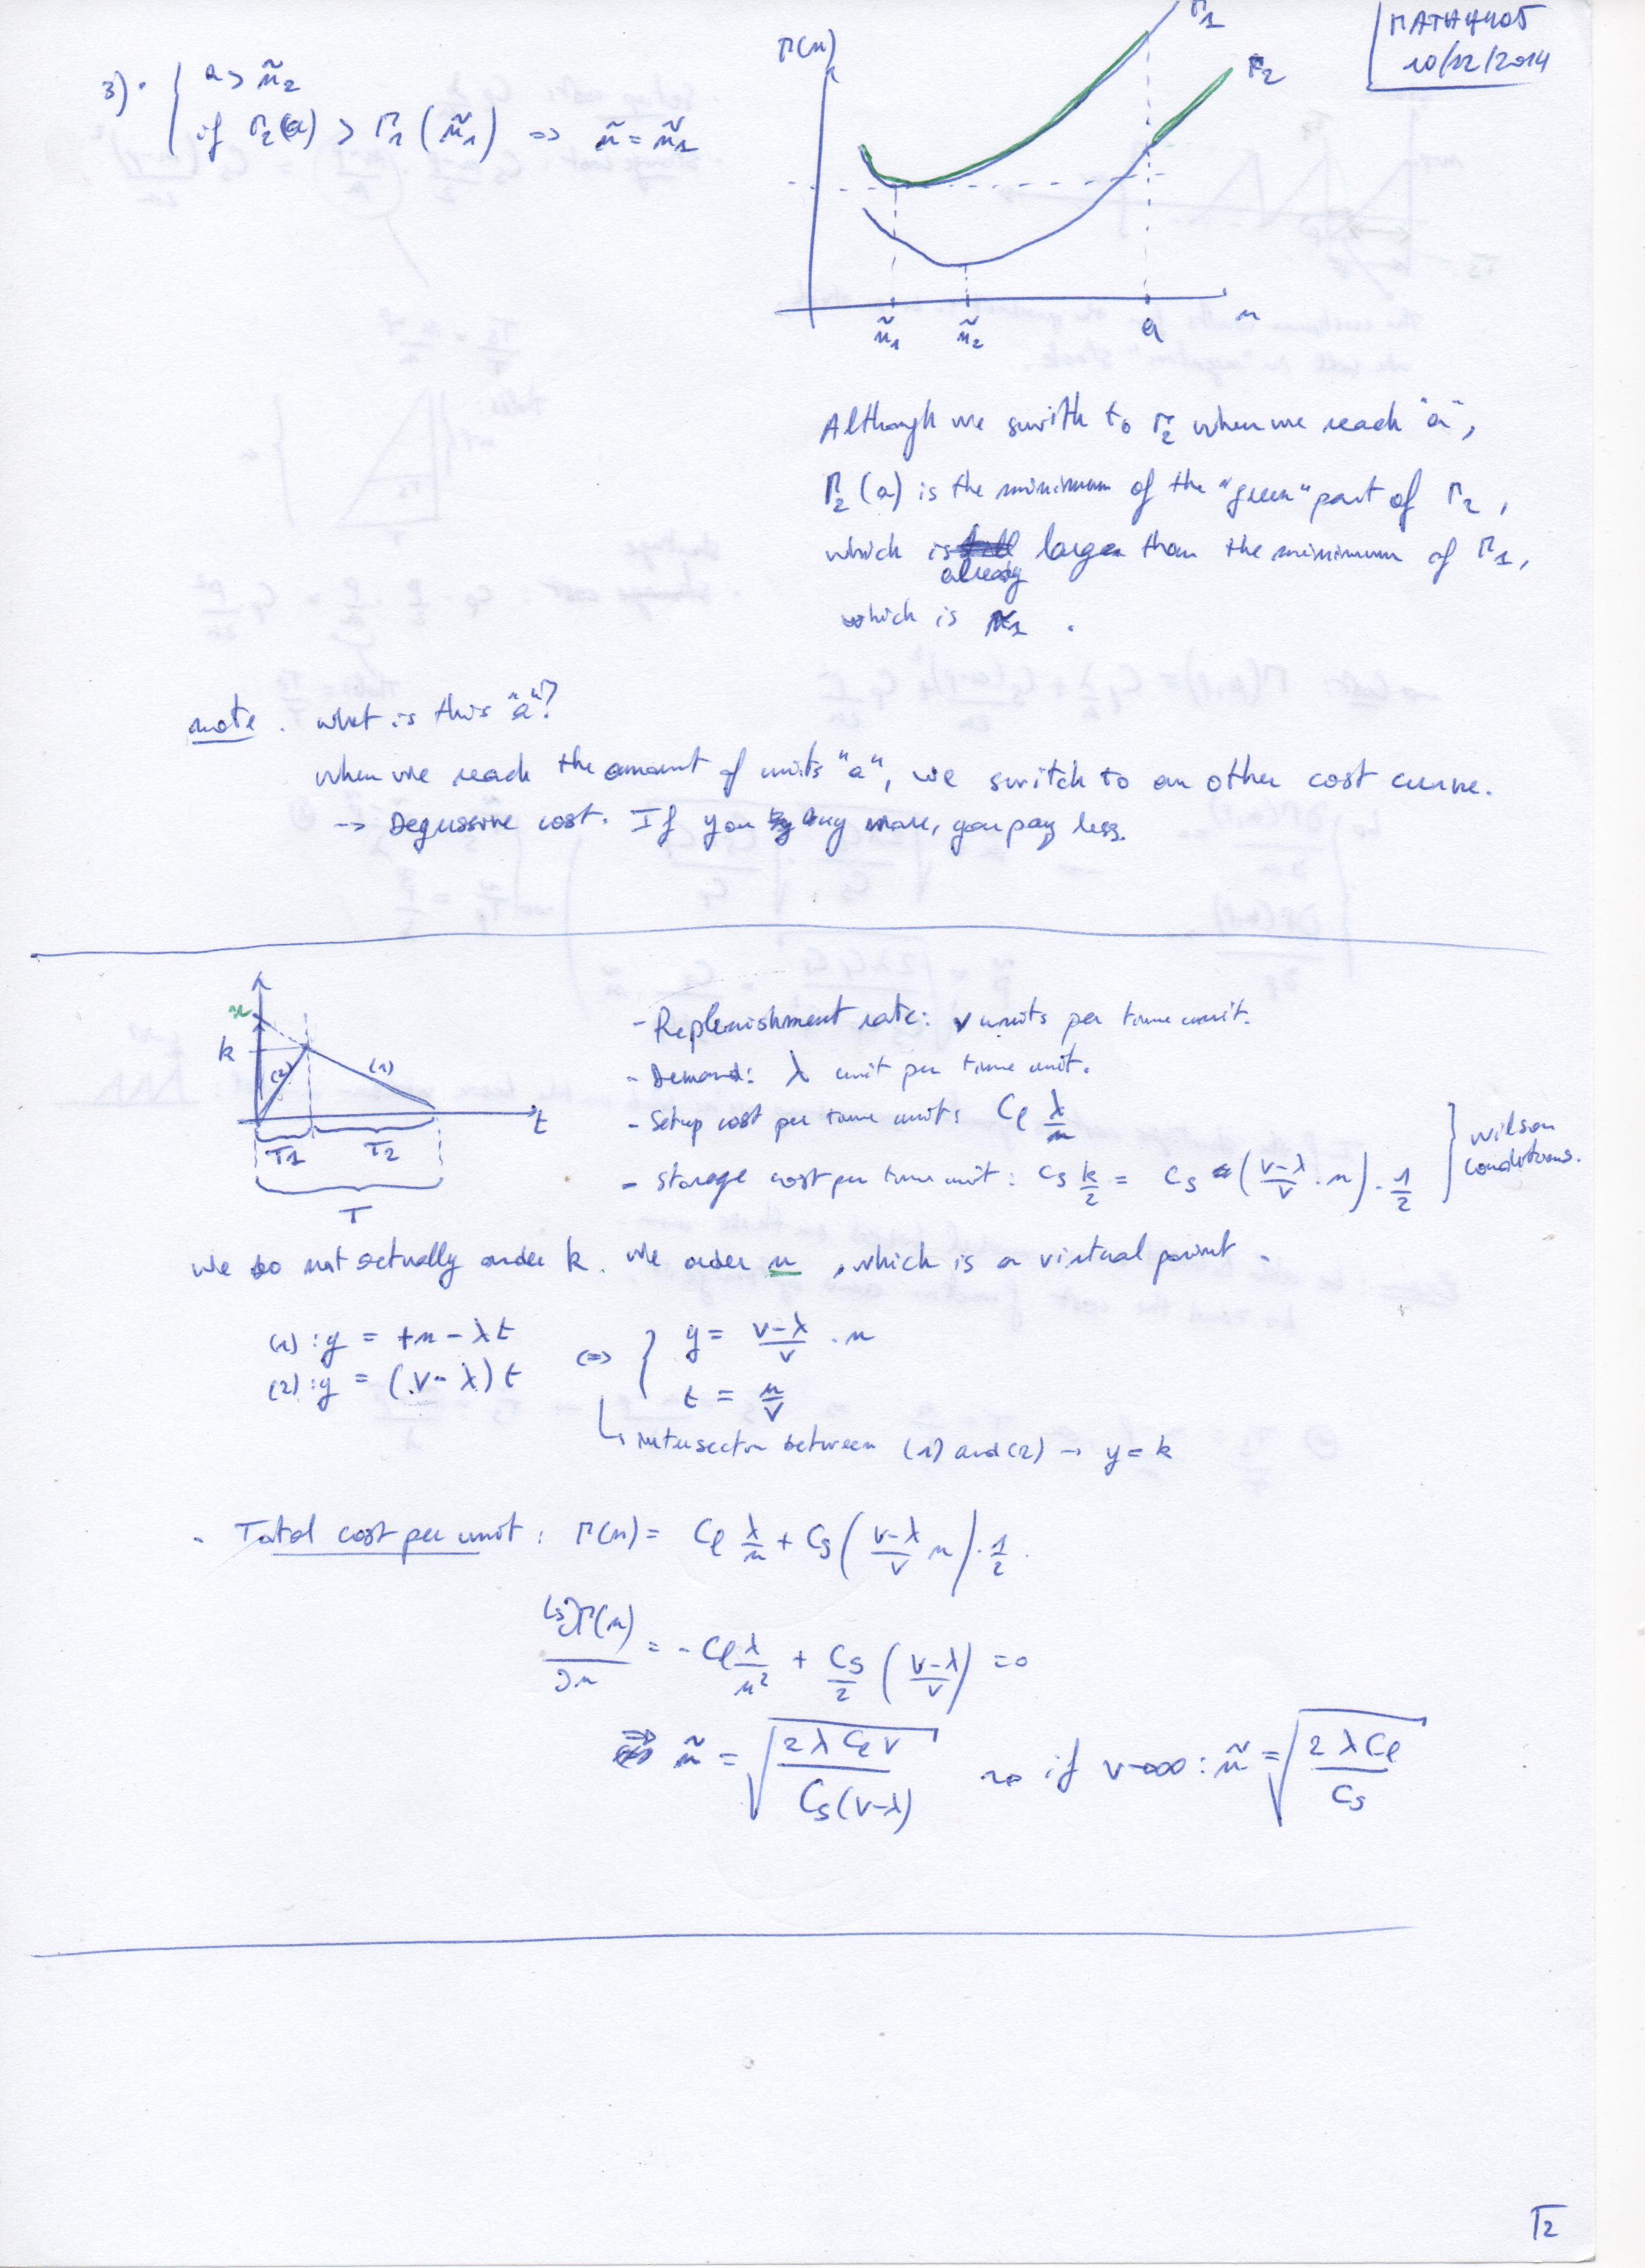 MATH4405
10/12/2014
3) · { a > ñ₂
if Γ₂(a) > Γ₁(ñ₁) => ñ = ñ₁
Γ(n)
Γ₁
Γ₂
ñ₁ ñ₂ a n
Although we swith to Γ₂ when we reach "a",
Γ₂(a) is the minimum of the "green" part of Γ₂,
which is already larger than the minimum of Γ₁,
which is ñ₁ .
note . what is this "a"?
when we reach the amount of units "a", we switch to an other cost curve.
-> Degressive cost. If you buy more, you pay less.
n
k
(2) (1)
t
T1 T2
T
- Replenishment rate: v units per time unit.
- Demand: λ unit per time unit.
- Setup cost per time unit: Cℓ λ/n
- Storage cost per time unit: Cs k/2 = Cs (v-λ/v . n) . 1/2
} Wilson conditions.
we do not actually order k. We order n , which is a virtual point.
(1): y = +n - λt
(2): y = (v-λ)t
<=> { y = v-λ/v . n
t = n/v
intersection between (1) and (2) -> y = k
- Total cost per unit: Γ(n) = Cℓ λ/n + Cs (v-λ/v n) . 1/2
∂Γ(n)/∂n = -Cℓ λ/n² + Cs/2 (v-λ/v) = 0
=> ñ = √(2λCℓv / Cs(v-λ)) ~> if v→∞ : ñ = √(2λCℓ / Cs)